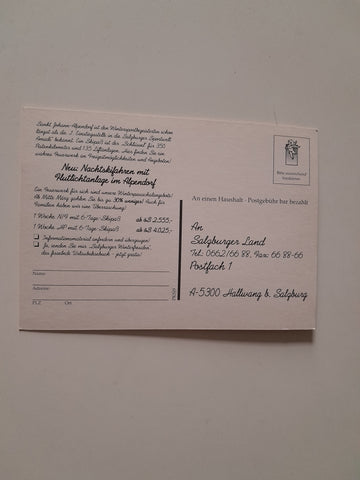 Sankt Johann-Alpendorf ist den Wintersportbegeisterten schon
längst als die 1. Einstiegsstelle in die Salzburger Sportwelt
Amadé bekannt. Ein Skipaß ist der "Schlüssel" für 350
Pistenkilometer und 135 Liftanlagen. Hier finden Sie ein
wahres Feuerwerk an Vergnügmöglichkeiten und Angeboten!
Neu: Nachtskifahren mit
Flutlichtanlage im Alpendorf
Ein Feuerwerk für sich sind unsere Winterpauschalangebote!
Ab Mitte März gehts bis zu 30% weniger! Auch für
Familien haben wir eine Überraschung!
1 Woche NF1 mit 6-Tage-Skipaß ab öS 2.555,-
1 Woche HP mit 6-Tage-Skipaß ab öS 4.025,-
Informationsmaterial anfordern und überzeugen!
Ja, senden Sie mir "Salzburger Winterfreuden",
das fesselnde Urlaubsbuch - jetzt gratis!
Name:
Adresse:
PLZ: Ort:
Bitte ausreichend
frankieren
An einen Haushalt · Postgebühr bar bezahlt
An
Salzburger Land
Tel. 0662/66 88, Fax: 66 88-66
Postfach 1
A-5300 Hallwang b. Salzburg